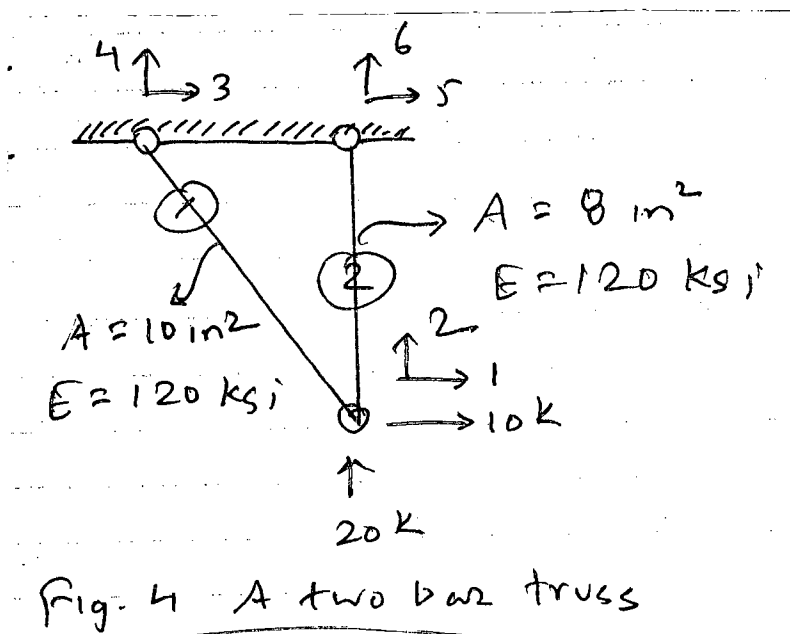 4
6
3
5
1
A = 8 in²
2
E = 120 ksi
A = 10 in²
2
E = 120 ksi
1
10 K
20 K
Fig. 4 A two bar truss